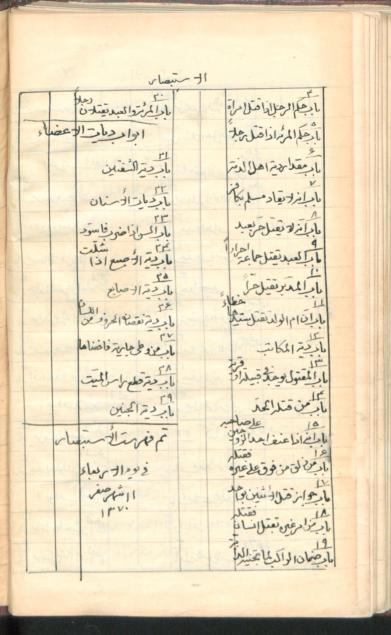 الاستبصار
٣
باب حكم الرجل اذا قتل امراة
٥
باب حكم المرئة اذا قتل رجلا
٦
باب مقدار دية اهل الذمة
٧
باب انه لا يقاد مسلم بكافر
٨
باب انه لا يقتل حر بعبد
٩
باب العبد يقتل جماعة احرار
١٠
باب المدبر يقتل حرا
١١
باب ان ام الولد تقتل سيدها خطاء
١٢
باب دية المكاتب
١٣
باب المقتول يوجد في قبيلة او قرية
١٤
باب من قتله الحد
١٥
باب اذا اعنف احد الزوجين على صاحبه
١٦
باب من زلق من فوق على غيره فقتله
١٧
باب جواز قتل الاثنين بواحد
١٨
باب من امر غيره بقتل انسان فقتله
١٩
باب ضمان الراكب لما تجنيه الدابة
٢٠
باب المرئة والعبد يقتلان رجلا
ابواب ديات الاعضاء
٢١
باب دية الشفتين
٢٢
باب ديات الاسنان
٢٣
باب السن اذا ضرب فاسود
٢٤
باب دية الاصبع اذا شلت
٢٥
باب دية الاصابع
٢٦
باب دية نقصان الحروف من اللسان
٢٧
باب من وطى جارية فافضاها
٢٨
باب دية قطع راس الميت
٢٩
باب دية الجنين
تم فهرست الاستبصار
في يوم الاربعاء
١١ شهر صفر
١٣٧٠